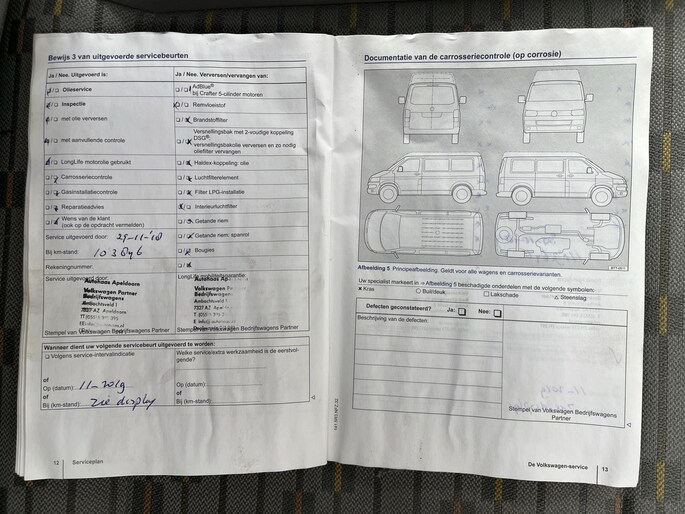 Bewijs 3 van uitgevoerde servicebeurten
Ja / Nee. Uitgevoerd is:
Ja / Nee. Verversen/vervangen van:
Olieservice
AdBlue®
bij Crafter 5-cilinder motoren
Inspectie
Remvloeistof
met olie verversen
Brandstoffilter
met aanvullende controle
Versnellingsbak met 2-voudige koppeling
DSG®:
versnellingsbakolie verversen en zo nodig
oliefilter vervangen
LongLife motorolie gebruikt
Haldex-koppeling: olie
Carrosseriecontrole
Luchtfilterelement
Gasinstallatiecontrole
Filter LPG-installatie
Reparatieadvies
Interieurluchtfilter
Wens van de klant
(ook op de opdracht vermelden)
Getande riem
Service uitgevoerd door:
29-11-'18
Getande riem: spanrol
Bij km-stand:
Bougies
Rekeningnummer:
Service uitgevoerd door:
LongLife mobiliteitsgarantie:
Autohaas Apeldoorn
Volkswagen Partner
Bedrijfswagens
7327 AZ Apeldoorn
Stempel van Volkswagen Bedrijfswagens Partner
Autohaas
Volkswagen
Bedrijfswagens
7327 AZ Apeldoorn
Stempel van Volkswagen Bedrijfswagens Partner
Wanneer dient uw volgende servicebeurt uitgevoerd te worden:
Volgens service-intervalindicatie
Welke service/extra werkzaamheid is de eerstvol-
gende?
of
Op (datum): 11-2019
Op (datum):
of
Bij (km-stand): zie display
of
Bij (km-stand):
12 Serviceplan
Documentatie van de carrosseriecontrole (op corrosie)
Afbeelding 5 Principeafbeelding. Geldt voor alle wagens en carrosserievarianten.
Uw specialist markeert in ⇒Afbeelding 5 beschadigde onderdelen met de volgende symbolen:
× Kras
○ Buil/deuk
□ Lakschade
△ Steenslag
Defecten geconstateerd?
Ja:
Nee:
Beschrijving van de defecten:
Stempel van Volkswagen Bedrijfswagens
Partner
De Volkswagen-service 13